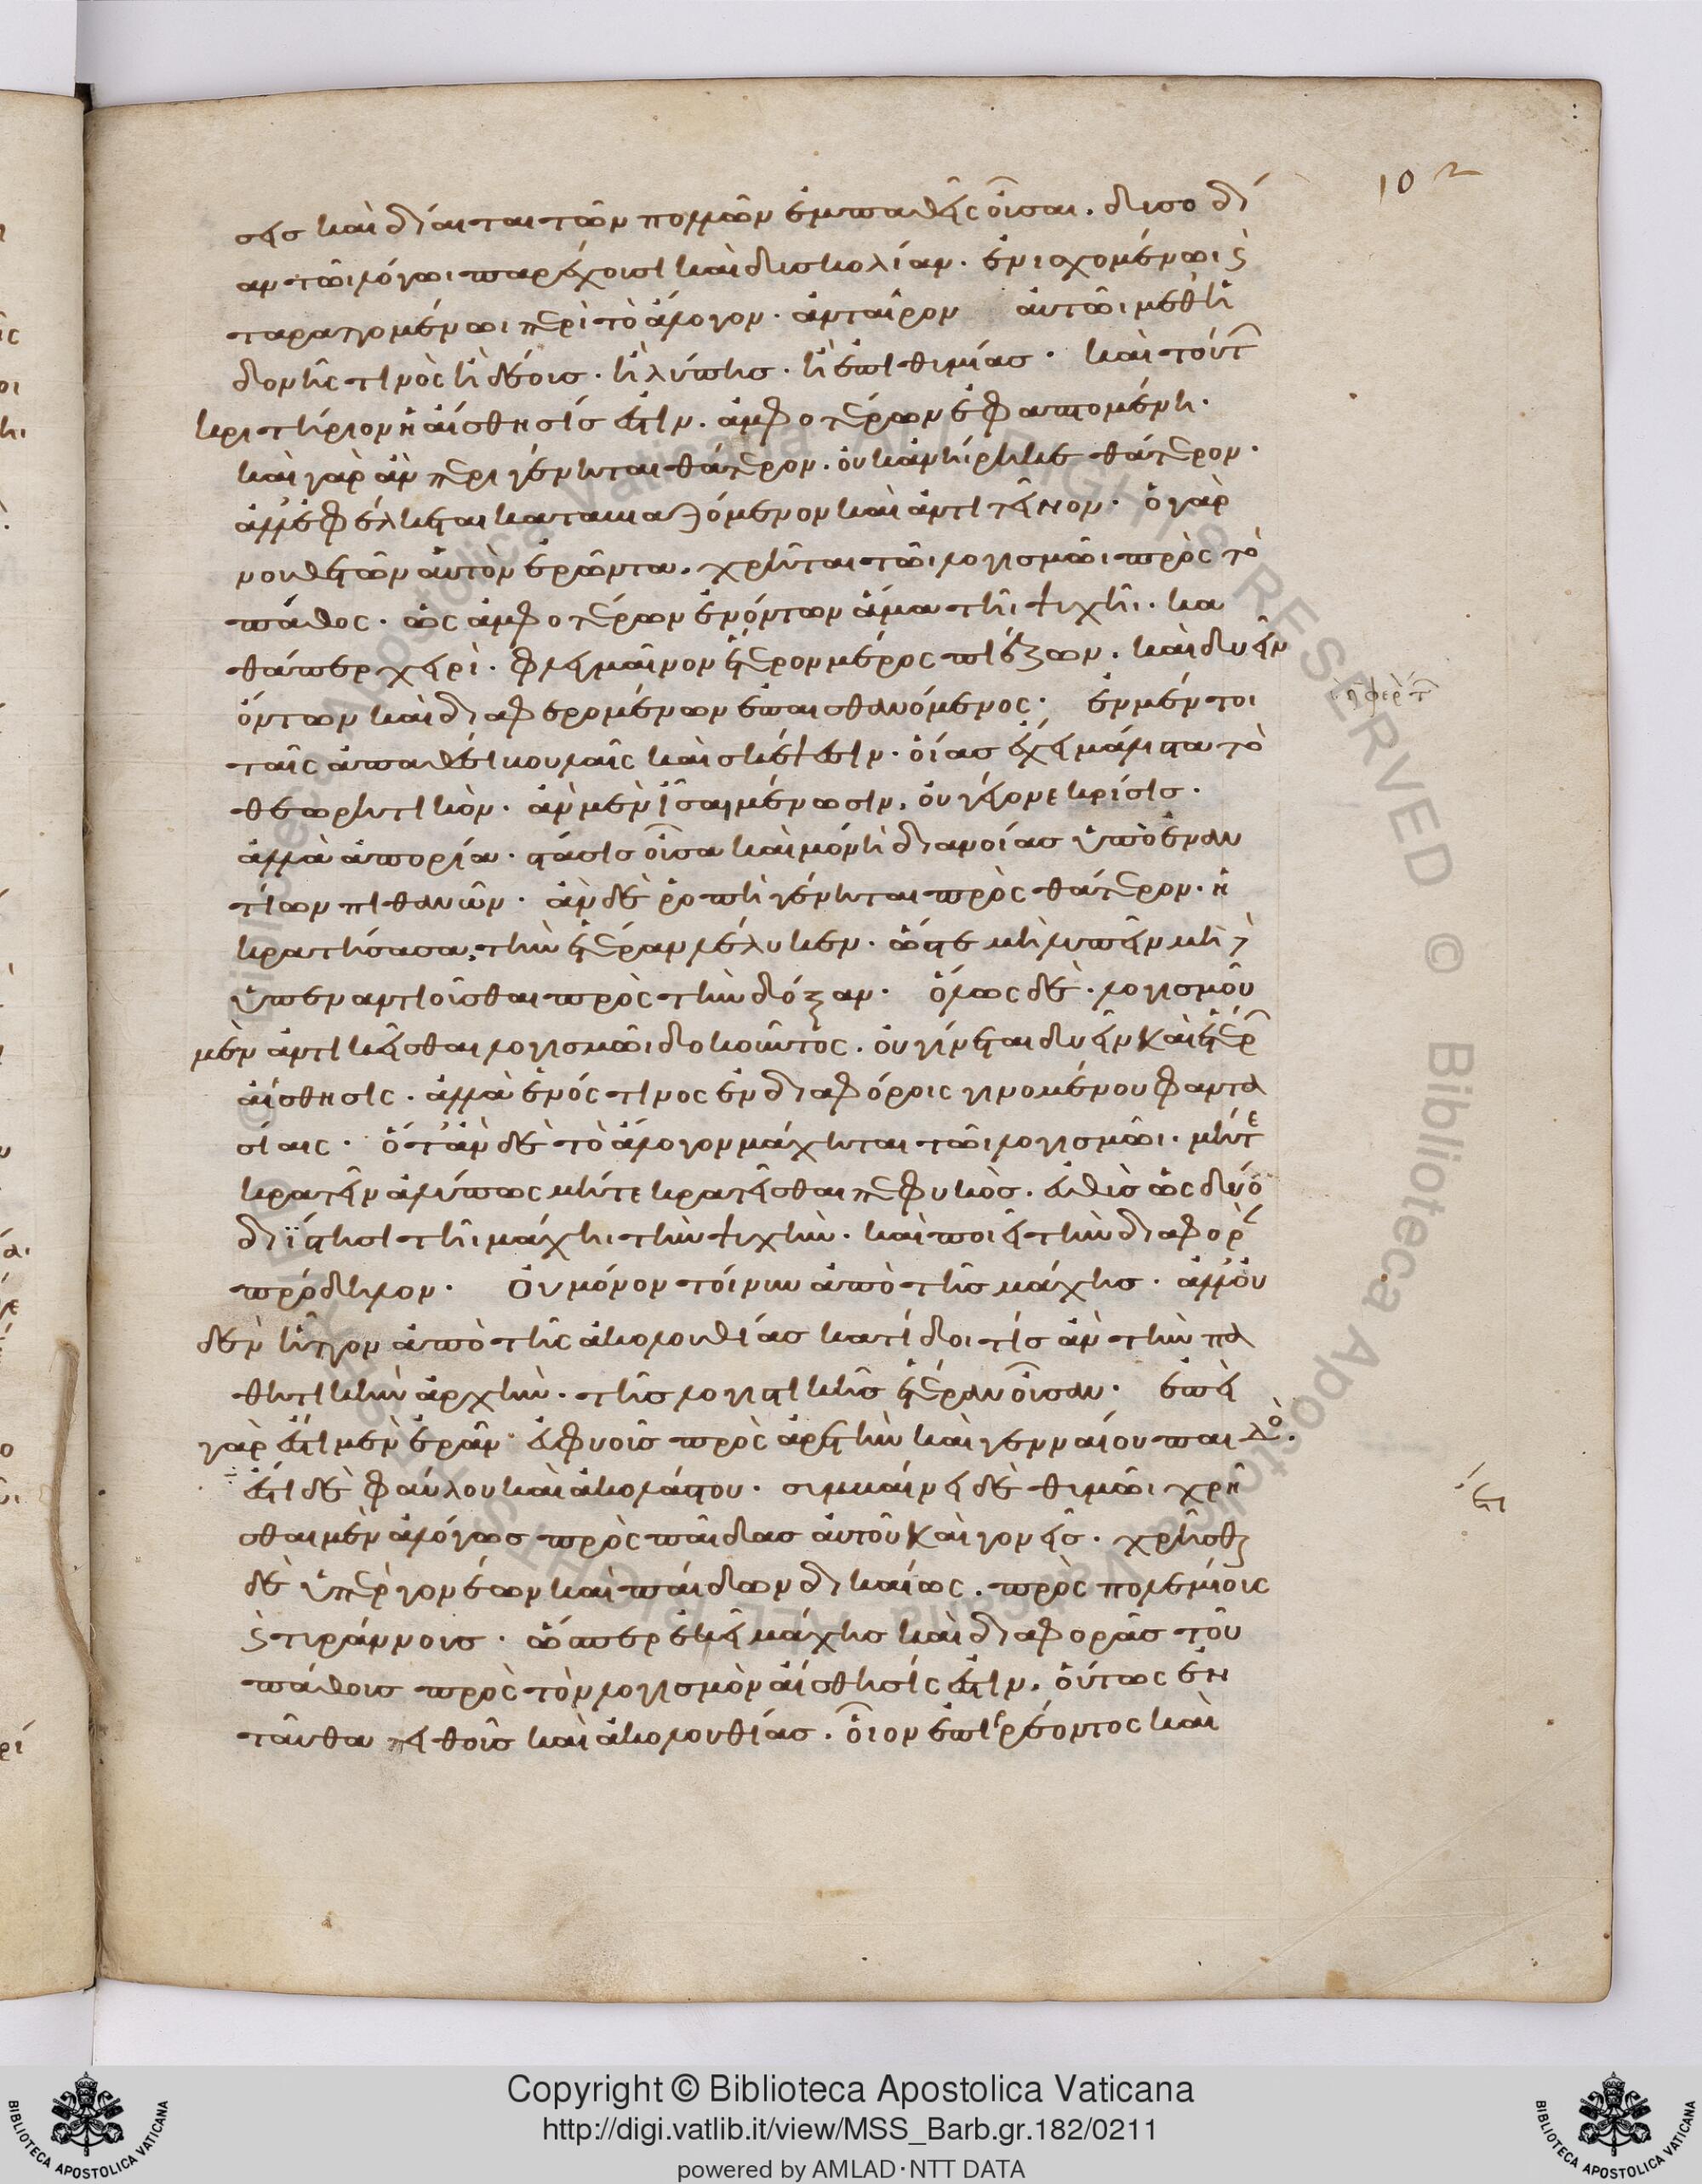 102
σεις καὶ δίαιται τῶν πολλῶν ἐμπαθεῖς οὖσαι. δυσοδί
αν τῶι λόγωι παρέχουσι καὶ δυσκολίαν. ἐνισχομένωι καὶ
ταραττομένωι περὶ τὸ ἄλογον. ἀνταῖρον αὐτῶι μεθ' ἡ
δονῆς τινὸς ἢ δέους. ἢ λύπης. ἢ ἐπιθυμίας. καὶ τούτ
κριτήριον ἡ αἴσθησίς ἐστιν. ἀμφοτέρων ἐφαπτομένη.
καὶ γὰρ ἂν περιγένηται θάτερον. οὐκ ἀνήρηκε θάτερον.
ἀλλ' ἐφέλκεται καταμαχόμενον καὶ ἀντιτεῖνον. ὁ γὰρ
νουθετῶν αὑτὸν ἐρῶντα. χρῆται τῶι λογισμῶι πρὸς τὸ
πάθος. ὡς ἀμφοτέρων ἐνόντων ἅμα τῆι ψυχῆι. κα
θάπερ χειρὶ. φλεγμαῖνον ἕτερον μέρος πιέζων. καὶ δυεῖν
ὄντων καὶ διαφερομένων ἐπαισθανόμενος. ἐν μέντοι
ταῖς ἀπαθέσι βουλαῖς καὶ σκέψεσιν. οἵας ἔχει μάλιστα τὸ
θεωρητικὸν. ἂν μὲν ἶσαι μένωσιν. οὐ γέγονε κρίσις.
ἀλλὰ ἀπορία. στάσις οὖσα καὶ μονὴ διανοίας ὑπὸ ἐναν
τίων πιθανῶν. ἂν δὲ ῥοπὴ γένηται πρὸς θάτερον. ἡ
κρατήσασα τὴν ἑτέραν λέλυκεν. ὥστε μὴ λυπεῖν μηδ
ὑπεναντιοῦσθαι πρὸς τὴν δόξαν. ὅλως δὲ. λογισμοῦ
μὲν ἀντικεῖσθαι λογισμῶι δοκοῦντος. οὐ γίνεται δυεῖν καὶ ἑτέρ
αἴσθησις. ἀλλὰ ἑνός τινος ἐν διαφόροις γινομένου φαντα
σίαις. ὅταν δὲ τὸ ἄλογον μάχηται τῶι λογισμῶι. μήτε
κρατεῖν ἀλύπως μήτε κρατεῖσθαι πεφυκὸς. εὐθὺς ὡς δύο
διΐστησι τῆι μάχηι τὴν ψυχὴν. καὶ ποιεῖ τὴν διαφορ
πρόδηλον. Οὐ μόνον τοίνυν ἀπὸ τῆς μάχης. ἀλλ' οὐ
δὲν ἧττον ἀπὸ τῆς ἀκολουθίας κατίδοι τίς ἂν τὴν πα
θητικὴν ἀρχὴν. τῆς λογιστικῆς ἑτέραν οὖσαν. ἐπεὶ
γὰρ ἔστι μὲν ἐρᾶν εὐφυοῦς πρὸς ἀρετὴν καὶ γενναίου παιδὸ.
ἔστι δὲ φαύλου καὶ ἀκολάστου. συμβαίνει δὲ θυμῶι χρῆ
σθαι μὲν ἀλόγως πρὸς παῖδας αὐτοῦ καὶ γονεῖς. χρῆσθαι
δὲ ὑπὲρ γονέων καὶ παίδων δικαίως. πρὸς πολεμίοις
καὶ τυράννους. ὥσπερ ἐκεῖ μάχης καὶ διαφορᾶς τοῦ
πάθους πρὸς τὸν λογισμὸν αἴσθησίς ἐστιν. οὕτως ἐν
ταῦθα πειθοῦς καὶ ἀκολουθίας. οἷον ἐπιρρέοντος καὶ
Copyright © Biblioteca Apostolica Vaticana
http://digi.vatlib.it/view/MSS_Barb.gr.182/0211
powered by AMLAD·NTT DATA
BIBLIOTECA APOSTOLICA VATICANA
BIBLIOTECA APOSTOLICA VATICANA